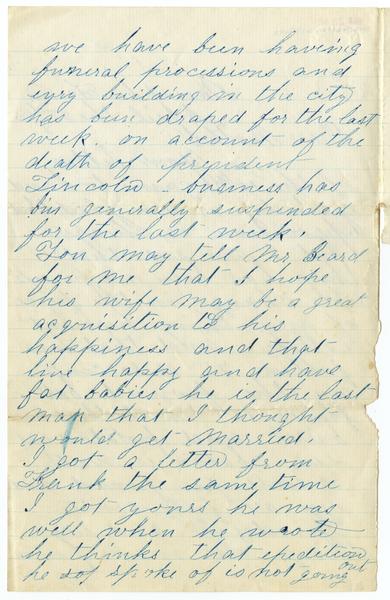 we have been having
funeral processions and
evry building in the city
has been draped for the last
week. on account of the
death of president
Lincoln - business has
bin generally suspended
for the last week.
You may tell Mr Beard
for me that I hope
his wife may be a great
acquisition to his
happiness and that
live happy and have
fat babies he is the last
man that I thought
would get married.
I got a letter from
Frank the same time
I got yours he was
well when he wrote
he thinks that epedition
he spoke of is not going out